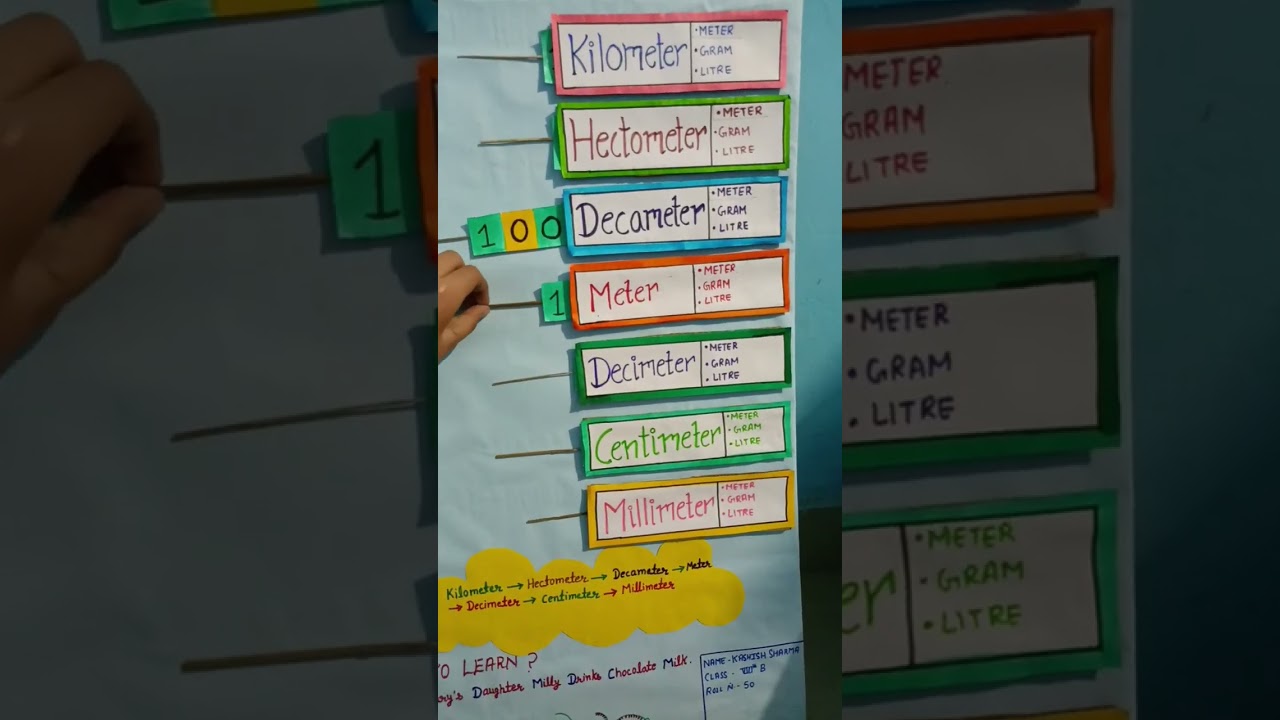 Kilometer
• METER
• GRAM
• LITRE
Hectometer
• METER
• GRAM
• LITRE
100
Decameter
• METER
• GRAM
• LITRE
1
Meter
• METER
• GRAM
• LITRE
Decimeter
• METER
• GRAM
• LITRE
Centimeter
• METER
• GRAM
• LITRE
Millimeter
• METER
• GRAM
• LITRE
Kilometer → Hectometer → Decameter → Meter
→ Decimeter → Centimeter → Millimeter
O LEARN ?
ry's Daughter Milly Drinks Chocolate Milk.
NAME - KASHISH SHARMA
CLASS - VIIth B
Roll N - 50
1
METER
GRAM
LITRE
• METER
• GRAM
• LITRE
er
• METER
• GRAM
• LITRE